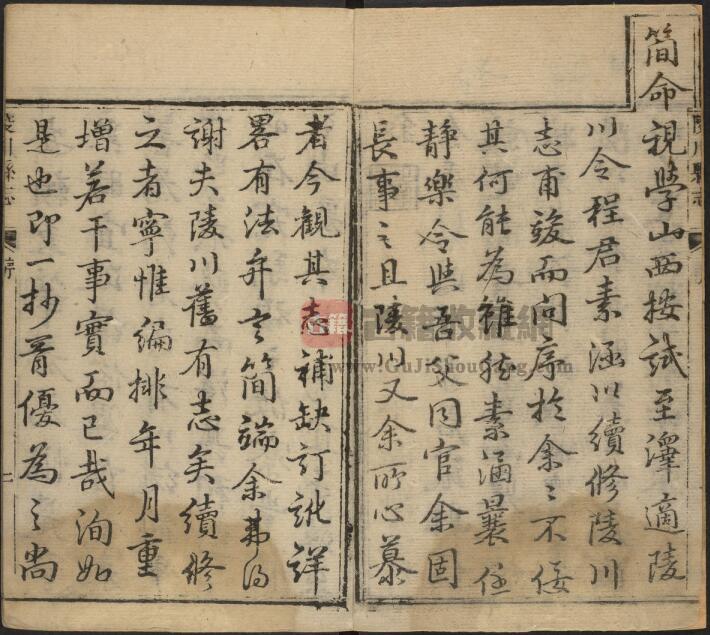 簡命視學山西按試至澤適陵
川令程君素涵以續修陵川
志甫竣而問序於余〻不佞
其何能為雖然素涵曩任
靜樂令與吾父同官余固
長事之且陵川又余所心慕
者今觀其志補缺訂訛詳
畧有法弁言簡端余弗得
謝夫陵川舊有志矣續修
之者寧惟編排年月重
增若干事實而已哉洵如
是也即一抄胥優為之尚
陵川縣志
序
古籍收藏網
www.GuJiShouCang.com